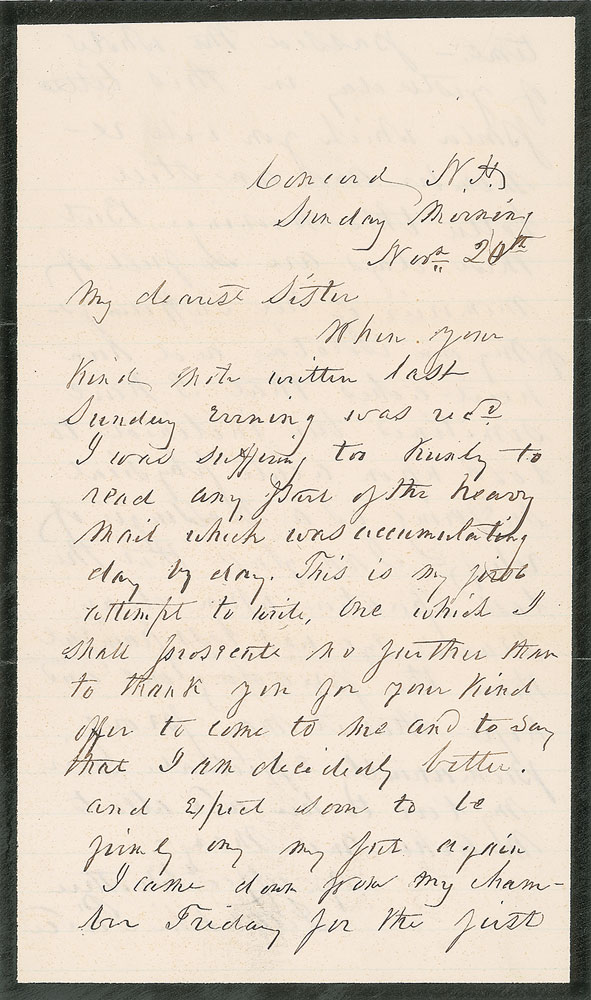 Concord N.H.
Sunday Morning
Novr. 20th
My dearest Sister
When your
kind note written last
Sunday evening was recd.
I was suffering too keenly to
read any part of the heavy
mail which was accumulating
day by day. This is my first
attempt to write, one which I
shall prosecute no further than
to thank you for your kind
offer to come to me and to say
that I am decidedly better.
and expect soon to be
firmly on my feet again
I came down from my cham-
ber Friday for the first